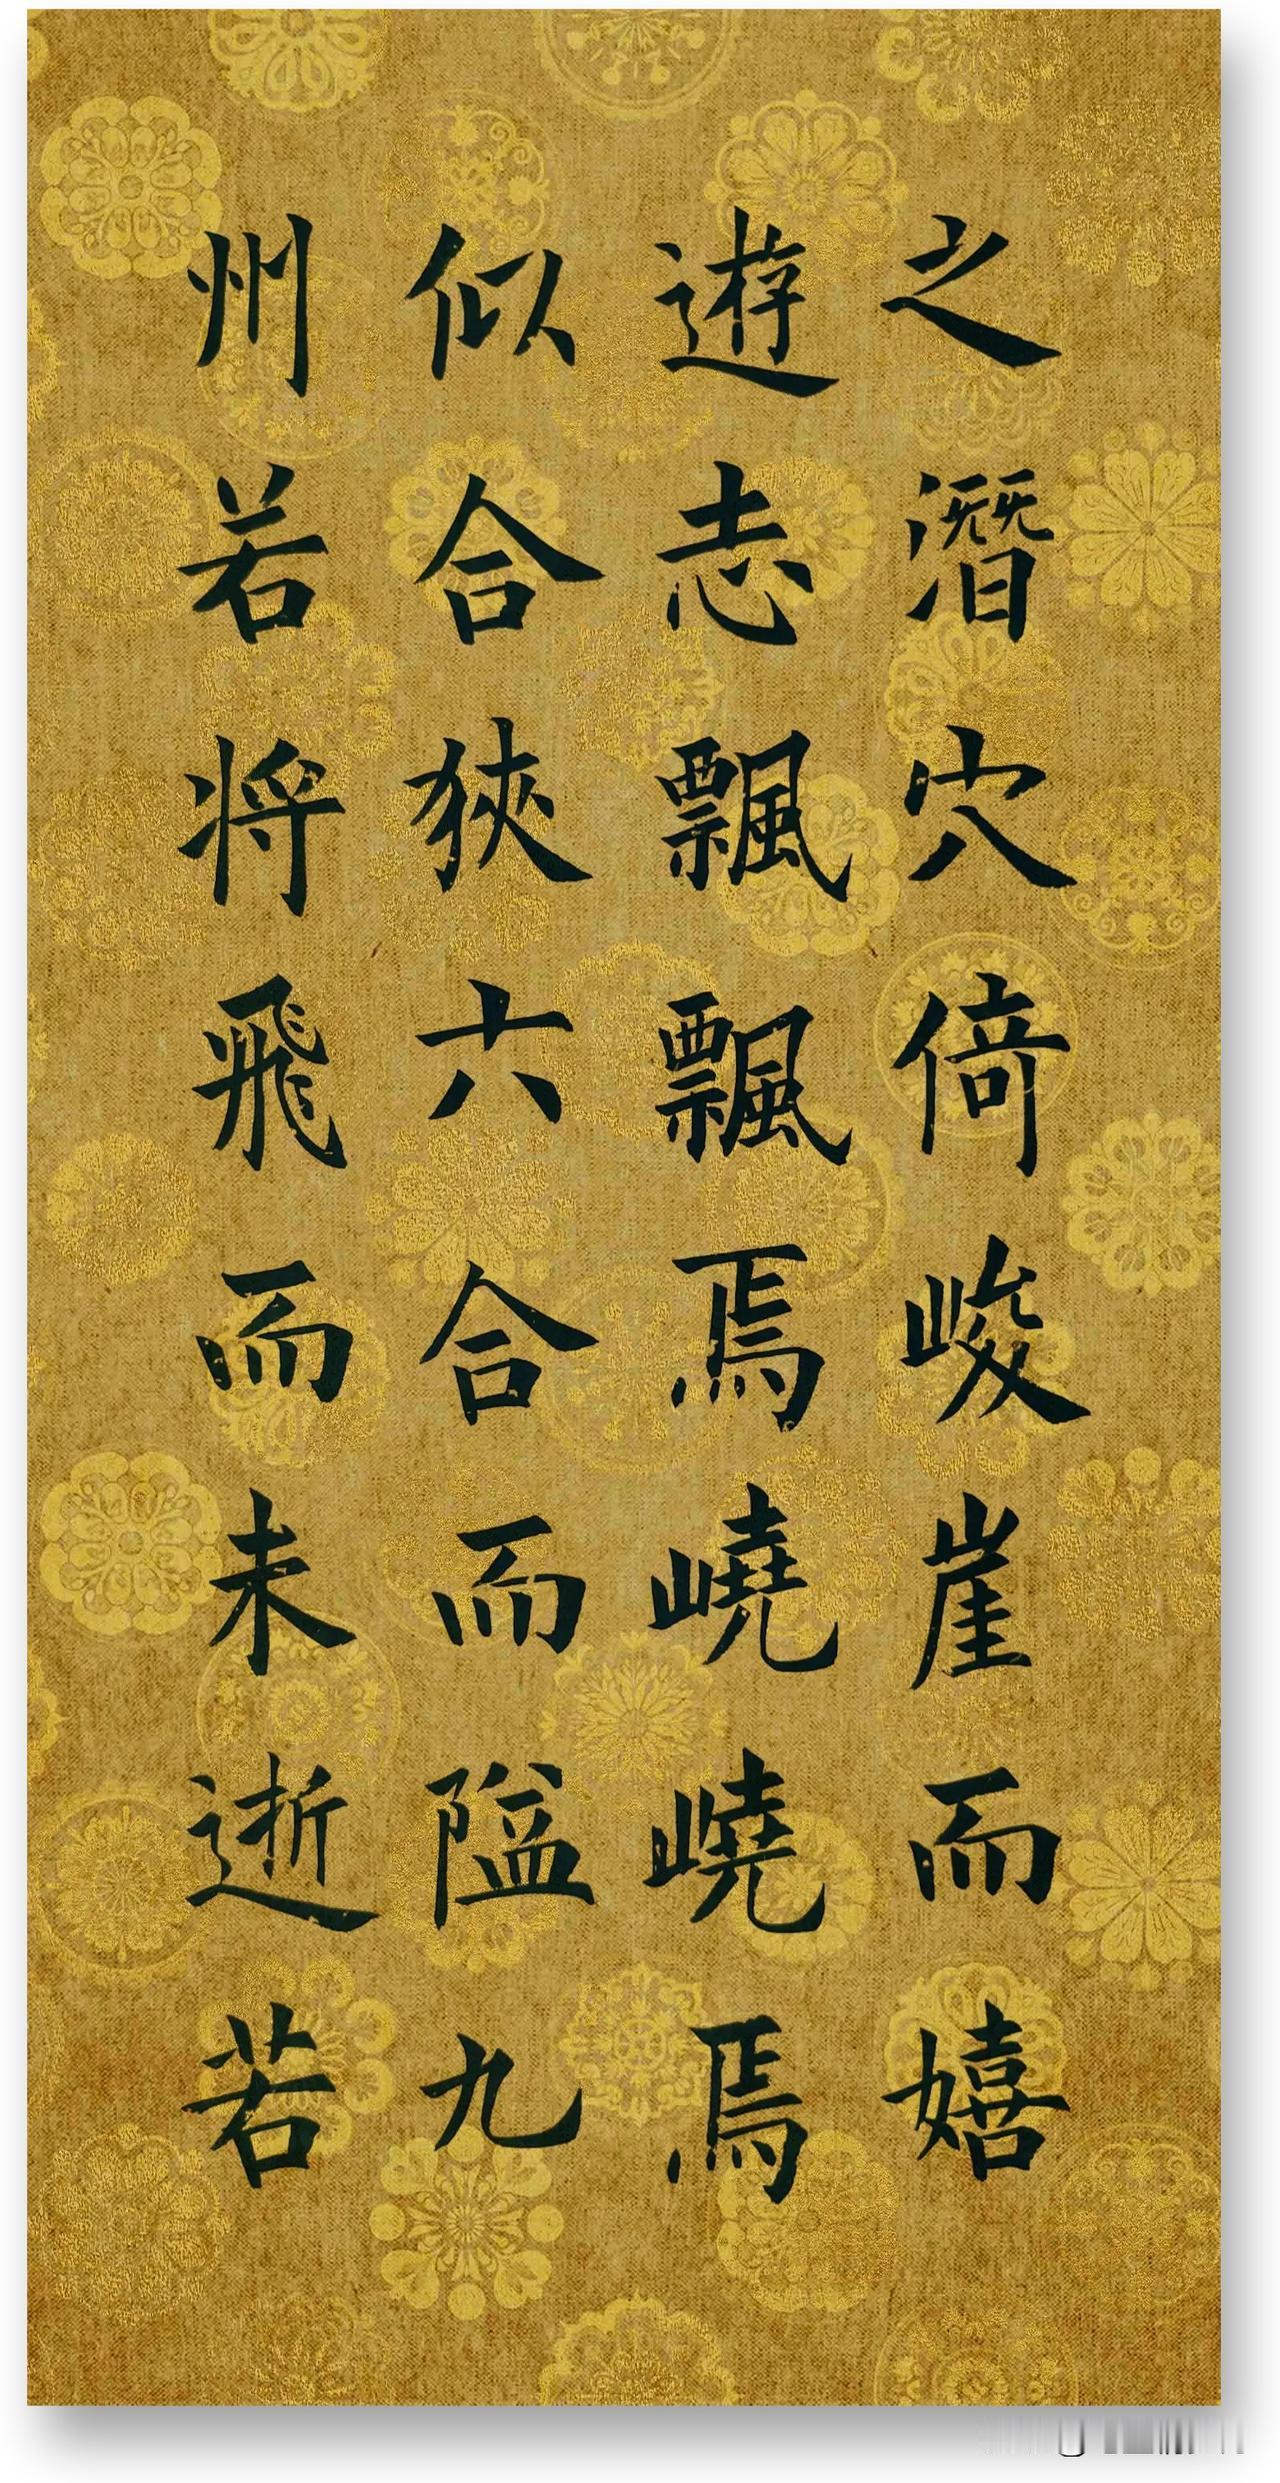 之潛穴倚峻崖而嬉
遊志飄飄焉嶢嶢焉
似合狹六合而隘九
州若将飛而未逝若